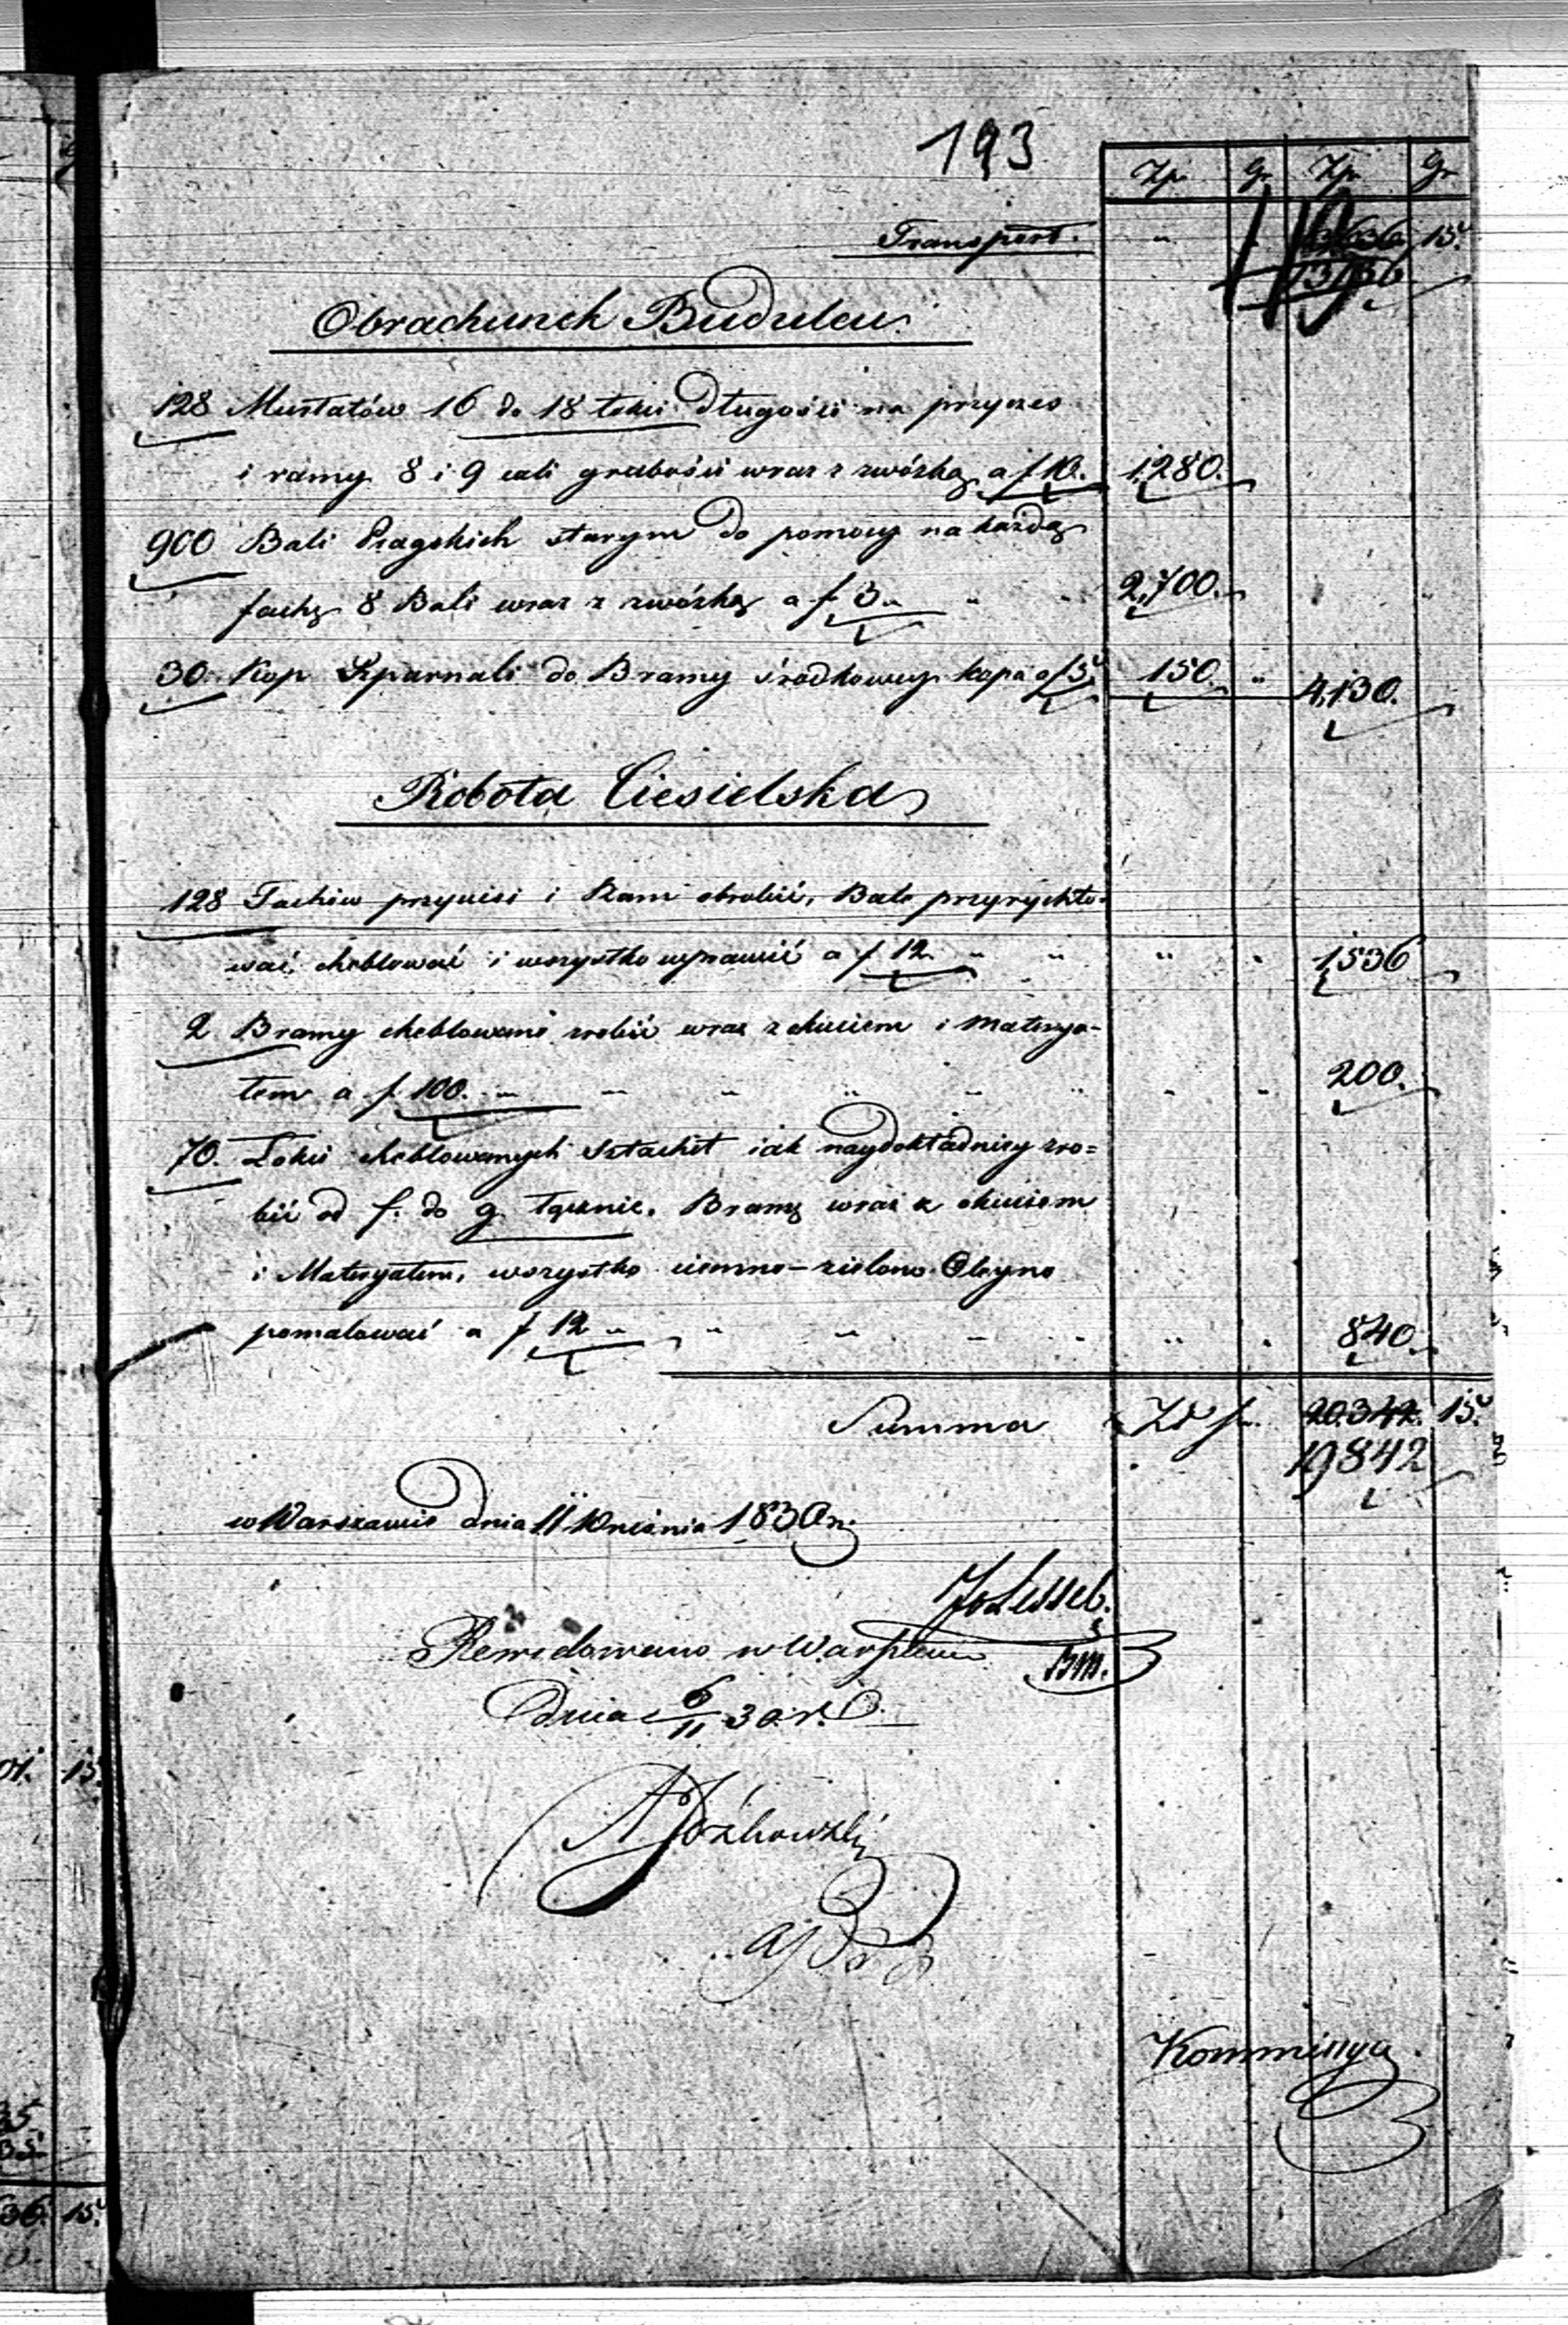 193
Zp. Gr Zp. Gr
Transport. " " 13636 15.
13136
Obrachunek Budulcu.
128 Murłatów 16 do 18 łokci długości na przycies
i ramy 8 i 9 cali grubości wraz z zwózką a f 10. 1,280.
900 Bali Pragskich starym do pomocy na każdą
fachę 8 Bali wraz z zwózką a f 3 " " " 2,700.
30. Kop Szparnali do Bramy środkowey kopa a f 5. 150. " 4,130.
Robota Ciesielska
128 Fachów przyciesi i Ram obrobić, Bale przyrychto-
wać, cheblować i wszystko wprawić a f 12. " " " " 1536
2 Bramy cheblowane zrobić wraz z okuciem i Materya-
łem a f 100. " " " " " " " " 200.
70. Łokci cheblowanych Sztachet iak naydokładniey zro=
bić od f. do g. łącznie. Bramę wraz z okuciem
i Materyałem, wszystko ciemno-zielono Oleyno
pomalować a f 12 " " " " " " " 840.
Summa Zł f. 20.342. 15.
19842
w Warszawie dnia 11 Września 1830 r.
Lessel.
Bm.
Rewidowano w Warszawie
dnia 6/11 30. r.
Kommissya
01. 15.
35
36. 15.